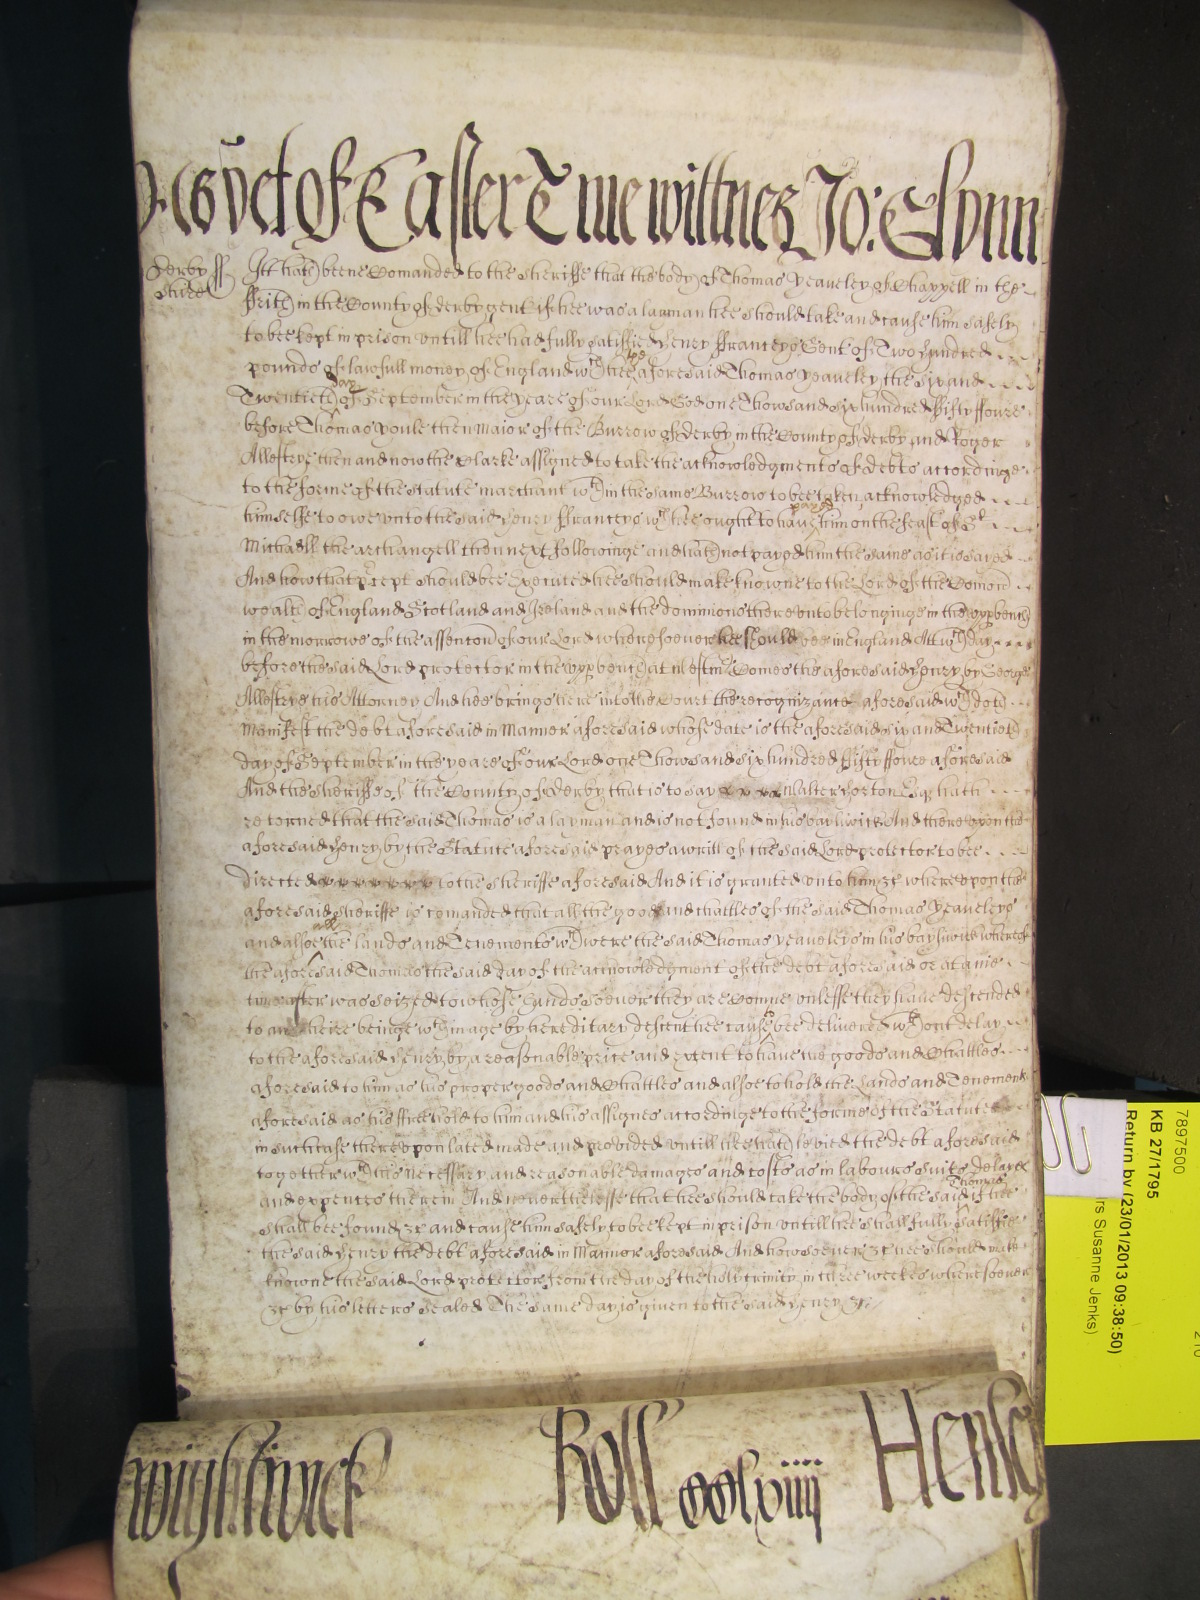 yet of Easter Tme wittnes Jo: Glynn
Derby ss
shire
Itt hath beene Comanded to the sheriffe that the body of Thomas Yeaveley of Chappell in the
ffrith in the County of derby gent if hee was a layman hee should take and cause him safely
to bee kept in prison untill hee had fully satisfied Henry ffranceys Gent of Two hundred
pounds of lawfull money of England wch hee the aforesaid Thomas Yeaveley the six and
Twentieth day of September in the yeare of our Lord God one Thowsand six hundred ffifty ffoure
before Thomas Youle then Maior of the Burrow of derby in the County of derby and Roger
Allestrye then and now the Clarke assigned to take the acknowledgments of debts accordinge
to the forme of the statute marchant wthin the same Burrow to bee taken acknowledged
himselfe to owe unto the said Henry ffranceys wch hee ought to have payed him on the feast of St
Michaell the archangell then next followinge and hath not payd him the same as it is sayed
And how that precept should bee Executed hee should make knowne to the Lord of the Comon
wealth of England Scotland and Ireland and the dominions thereunto belonginge in the upp bench
in the morrowe of the assention of our Lord wheresoever hee should bee in England Att wch day
before the said Lord protector in the upp bench at westmr Comes the aforesaid Henry by George
Allestrye his Attorney And hee brings here into the Court the recognizance aforesaid wch doth
Manifest the debt aforesaid in Mannor aforesaid whose date is the aforesaid six and Twentieth
day of September in the yeare of our Lord one Thowsand six hundred ffifty ffoure aforesaid
And the sheriffe of the County of derby that is to say Walter Horton Esq hath
retorned that the said Thomas is a layman and is not found in his bayliwick And thereupon the
aforesaid Henry by the Statute aforesaid prayes a writt of the said Lord protector to bee
directed to the sheriffe aforesaid And it is granted unto him &c whereupon the
aforesaid sheriffe is comanded that all the goods and chattles of the said Thomas Yeaveleys
and alsoe all the lands and Tenements wch were the said Thomas Yeaveleys in his bayliwick whereof
the aforesaid Thomas the said day of the acknowledgment of the debt aforesaid or at anie
time after was seized to whose hands soever they are Comne unlesse they have descended
to anie heire beinge wthin age by hereditary descent hee cause to bee delivered wthout delay
to the aforesaid Henry by a reasonable price and extent to have the goods and Chattles
aforesaid to him as his proper goods and Chattles and alsoe to hold the Lands and Tenements
aforesaid as his ffreehold to him and his assignes accordinge to the forme of the Statute
in such case thereupon lated made and provided untill hee hath levied the debt aforesaid
together wth his necessary and reasonable damages and costs as in labours suits delayes
and expences therein And neverthelesse that hee should take the body of the said Thomas if hee
shall bee found &c and cause him safely to bee kept in prison untill hee shall fully satisfie
the said Henry the debt aforesaid in Mannor aforesaid And howsoever &c hee should make
knowne the said Lord protector from the day of the holy trinity in three weekes wheresoever
&c by his letters sealed The same day is given to the said Henry &c
wightwick Roll cclxiiij Henle
7897500
KB 27/1795
Return by (23/01/2013 09:38:50)
rs Susanne Jenks)